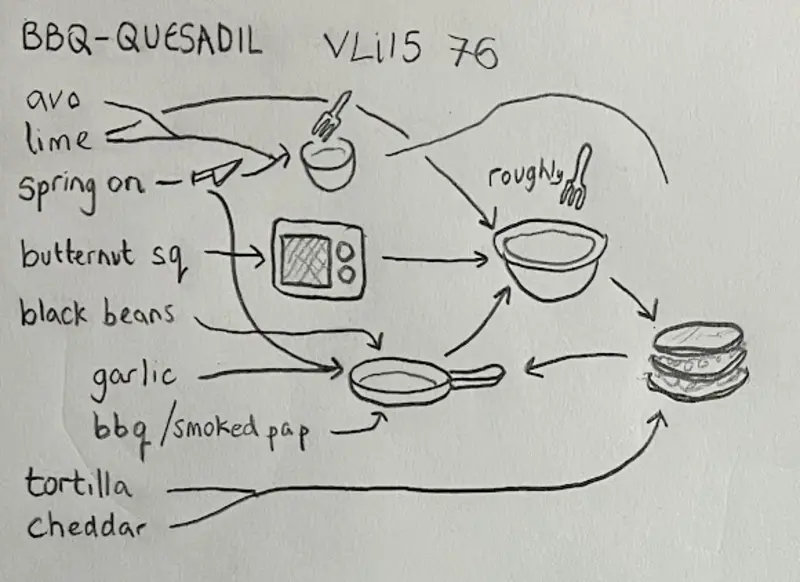 BBQ-QUESADIL VLi15 76
avo
lime
spring on
roughly
butternut sq
black beans
garlic
bbq/smoked pap
tortilla
cheddar